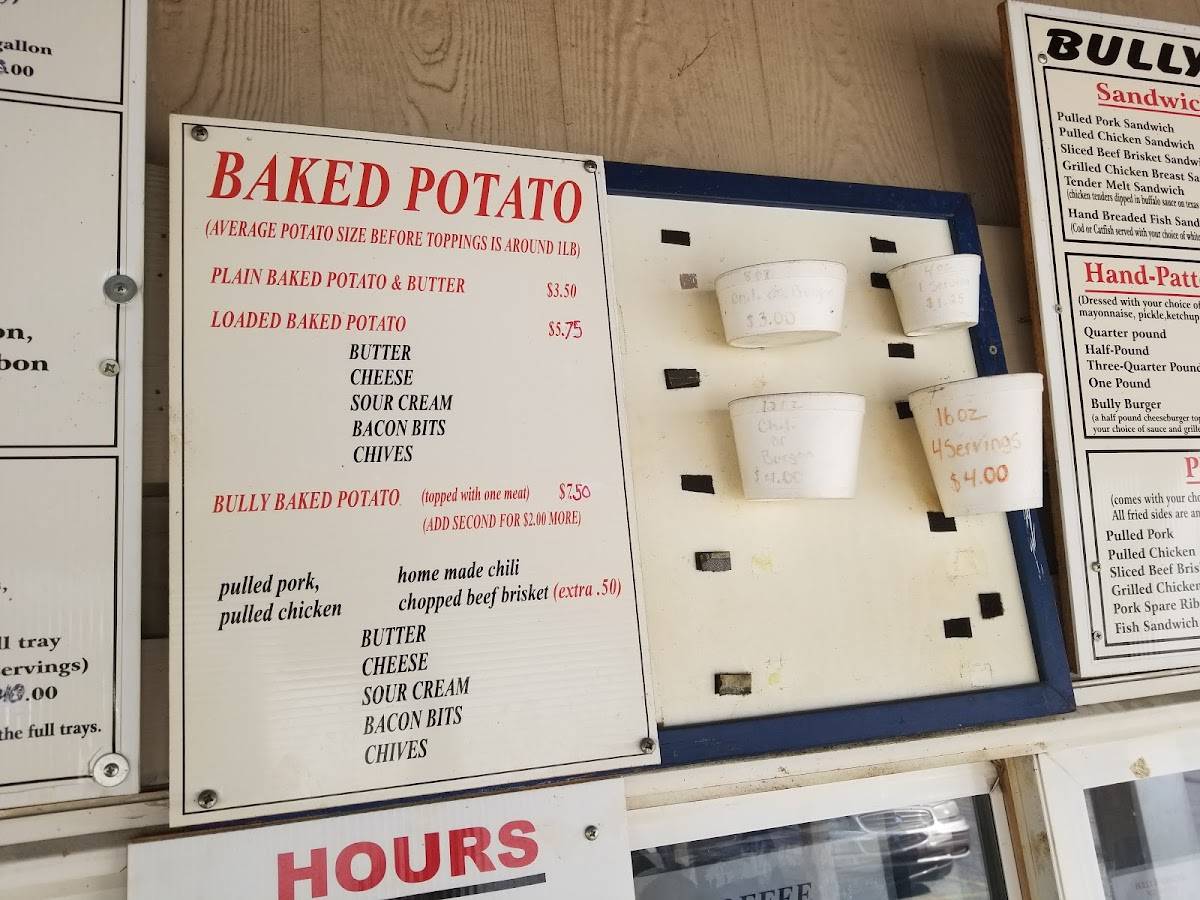 allon
.00
on,
bon
ll tray
ervings)
.00
the full trays.
BAKED POTATO
(AVERAGE POTATO SIZE BEFORE TOPPINGS IS AROUND 1LB)
PLAIN BAKED POTATO & BUTTER $3.50
LOADED BAKED POTATO $5.75
BUTTER
CHEESE
SOUR CREAM
BACON BITS
CHIVES
BULLY BAKED POTATO (topped with one meat) $7.50
(ADD SECOND FOR $2.00 MORE)
pulled pork, home made chili
pulled chicken chopped beef brisket (extra .50)
BUTTER
CHEESE
SOUR CREAM
BACON BITS
CHIVES
HOURS
8oz
$3.00
4oz
1 Serving
$1.25
12oz
Chili
or
Burgoo
$4.00
16oz
4 Servings
$4.00
BULLY
Sandwic
Pulled Pork Sandwich
Pulled Chicken Sandwich
Sliced Beef Brisket Sandwi
Grilled Chicken Breast Sa
Tender Melt Sandwich
(chicken tenders dipped in buffalo sauce on texas
Hand Breaded Fish Sand
(Cod or Catfish served with your choice of white
Hand-Patt
(Dressed with your choice of
mayonnaise, pickle,ketchup
Quarter pound
Half-Pound
Three-Quarter Pound
One Pound
Bully Burger
(a half pound cheeseburger to
your choice of sauce and grille
P
(comes with your cho
All fried sides are an
Pulled Pork
Pulled Chicken
Sliced Beef Bris
Grilled Chicken
Pork Spare Rib
Fish Sandwich